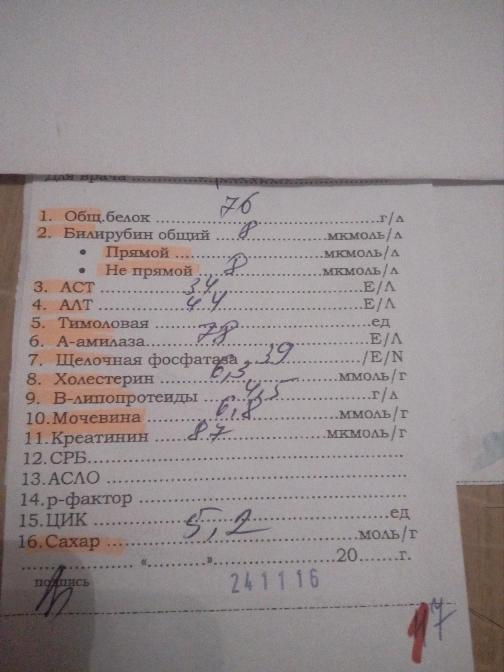 Для врача
1. Общ.белок 76 г/л
2. Билирубин общий 8 мкмоль/л
• Прямой мкмоль/л
• Не прямой 8 мкмоль/л
3. АСТ 34 Е/Л
4. АЛТ 44 Е/Л
5. Тимоловая ед
6. А-амилаза 78 Е/Л
7. Щелочная фосфатаза 39 /Е/N
8. Холестерин 6,3 ммоль/г
9. В-липопротеиды 4,5 г/л
10.Мочевина 6,8 ммоль/г
11.Креатинин 87 мкмоль/г
12.СРБ
13.АСЛО
14.р-фактор
15.ЦИК ед
16.Сахар 5,2 моль/г
« » 20 г.
подпись 241116
17